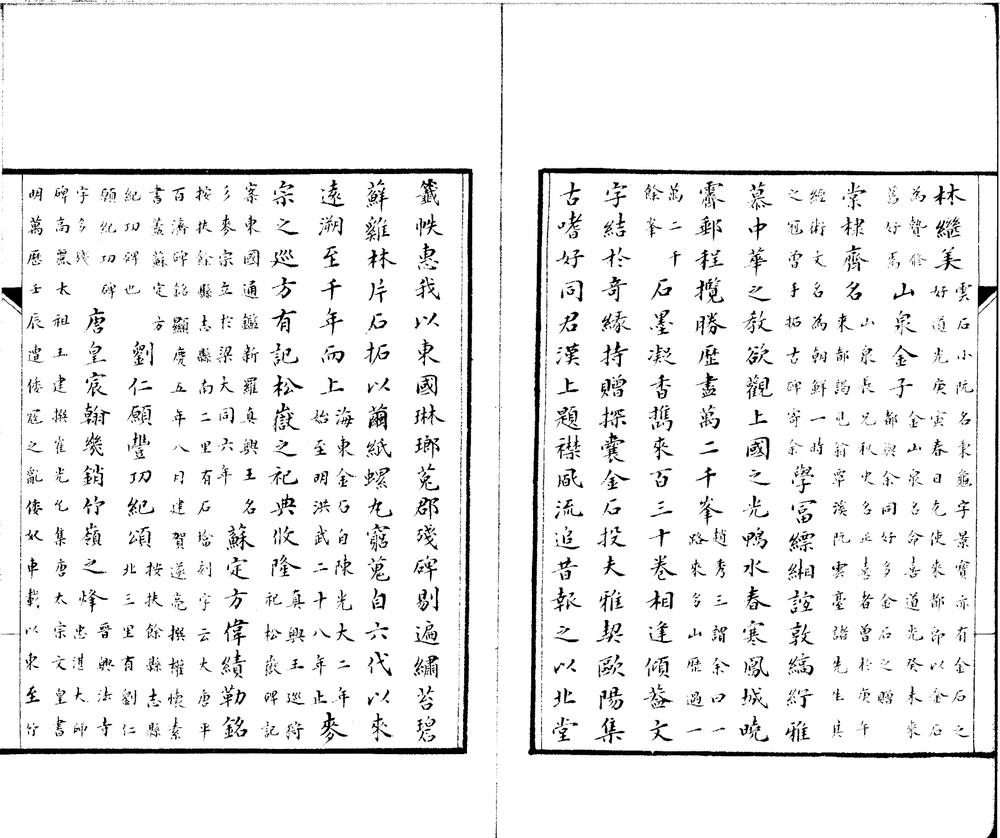 林繼美雲石小阮名秉龜字景寶亦有金石之
好道光庚寅春日充使來都即以金石
為贄修
舊好焉山泉金子金山泉名命喜道光癸未來
都與余同好多金石之贈
山泉長兄秋史名正喜者曾於庚午
來都謁見翁覃溪阮雲臺諸先生其
棠棣齊名
經術文名為朝鮮一時
之冠曾手拓古碑寄余學富縹緗誼敦縞紵雅
慕中華之教欲觀上國之光鴨水春寒鳳城曉
霽郵程攬勝歷盡萬二千峯趙秀三謂余曰一
路來多山歷過一
萬二千
餘峯石墨凝香攜來百三十卷相逢傾蓋文
字結於奇緣持贈探囊金石投夫雅契歐陽集
古嗜好同君漢上題襟風流追昔報之以北堂
籤帙惠我以東國琳瑯菟郡殘碑剔遍繡苔碧
蘚雞林片石拓以繭紙螺丸窮蒐自六代以來
遠溯至千年而上海東金石自陳光大二年
始至明洪武二十八年止麥
宗之巡方有記松嶽之祀典攸隆真興王巡狩
祀松嶽碑記
案東國通鑑新羅真興王名
彡麥宗立於梁大同六年蘇定方偉績勒銘
按扶餘縣志縣南二里有石瑜刻字云大唐平
百濟碑銘顯慶五年八月建賀遂亮撰權懷素
書蓋蘇定方
紀功碑也劉仁願豐功紀頌按扶餘縣志縣
北三里有劉仁
願紀功碑
字多殘唐皇宸翰幾銷竹嶺之烽晉興法寺
忠湛大師
碑高麗太祖王建撰崔光允集唐太宗文皇書
明萬曆壬辰遭倭寇之亂倭奴車載以東至竹